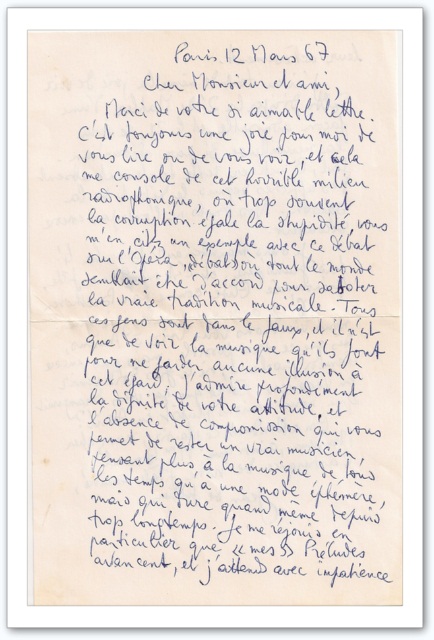 Paris 12 Mars 67
Cher Monsieur et ami,
Merci de votre si aimable lettre.
C'est toujours une joie pour moi de
vous lire ou de vous voir, et cela
me console de cet horrible milieu
radiophonique, où trop souvent
la corruption égale la stupidité, vous
m'en citez un exemple avec ce débat
sur l'Opéra, débat où tout le monde
semblait être d'accord pour saboter
la vraie tradition musicale. Tous
ces gens sont dans le faux, et il n'est
que de voir la musique qu'ils font
pour ne garder aucune illusion à
cet égard. J'admire profondément
la dignité de votre attitude, et
l'absence de compromission qui vous
permet de rester un vrai musicien,
pensant plus à la musique de tous
les temps qu'à une mode éphémère,
mais qui dure quand même depuis
trop longtemps. Je me réjouis en
particulier que "mes" Préludes
avancent, et j'attends avec impatience